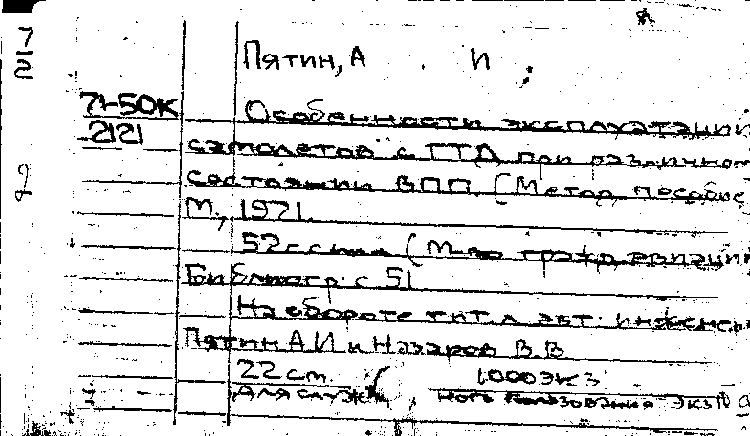 Пятин, А. И.
71-50К
2121
Особенности эксплуатации
самолетов с ГТД при различном
состоянии ВПП. (Метод. пособие
М., 1971.
52 с с илл (М-во гражд. авиации
Библиогр. с 51
На обороте тит. л. авт. инженеры
Пятин А И и Назаров В. В
22 см. 1.000 экз
Для служ ного пользования экз №